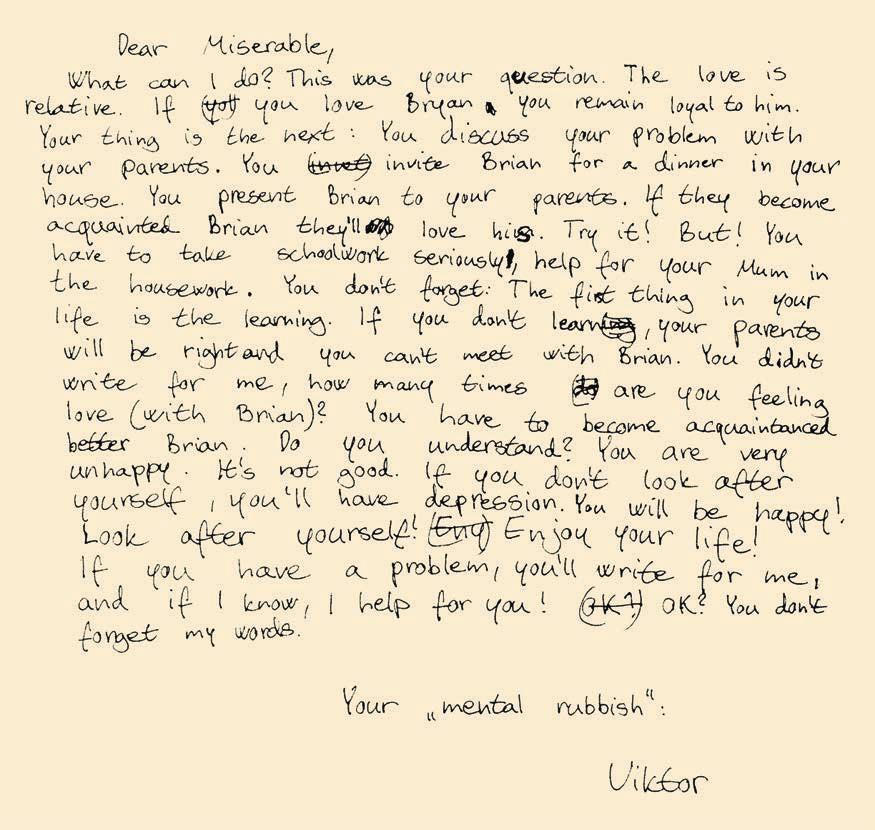 Dear Miserable,
What can I do? This was your question. The love is
relative. If (you) you love Bryan, you remain loyal to him.
Your thing is the next: You discuss your problem with
your parents. You (invet) invite Brian for a dinner in your
house. You present Brian to your parents. If they become
acquainted Brian they'll love him. Try it! But! You
have to take schoolwork seriously, help for your Mum in
the housework. You don't forget: The first thing in your
life is the learning. If you don't learn, your parents
will be right and you can't meet with Brian. You didn't
write for me, how many times are you feeling
love (with Brian)? You have to become acquaintanced
better Brian. Do you understand? You are very
unhappy. It's not good. If you don't look after
yourself, you'll have depression. You will be happy!
Look after yourself! (Eny) Enjoy your life!
If you have a problem, you'll write for me,
and if I know, I help for you! (OK?) OK? You don't
forget my words.
Your „mental rubbish":
Viktor